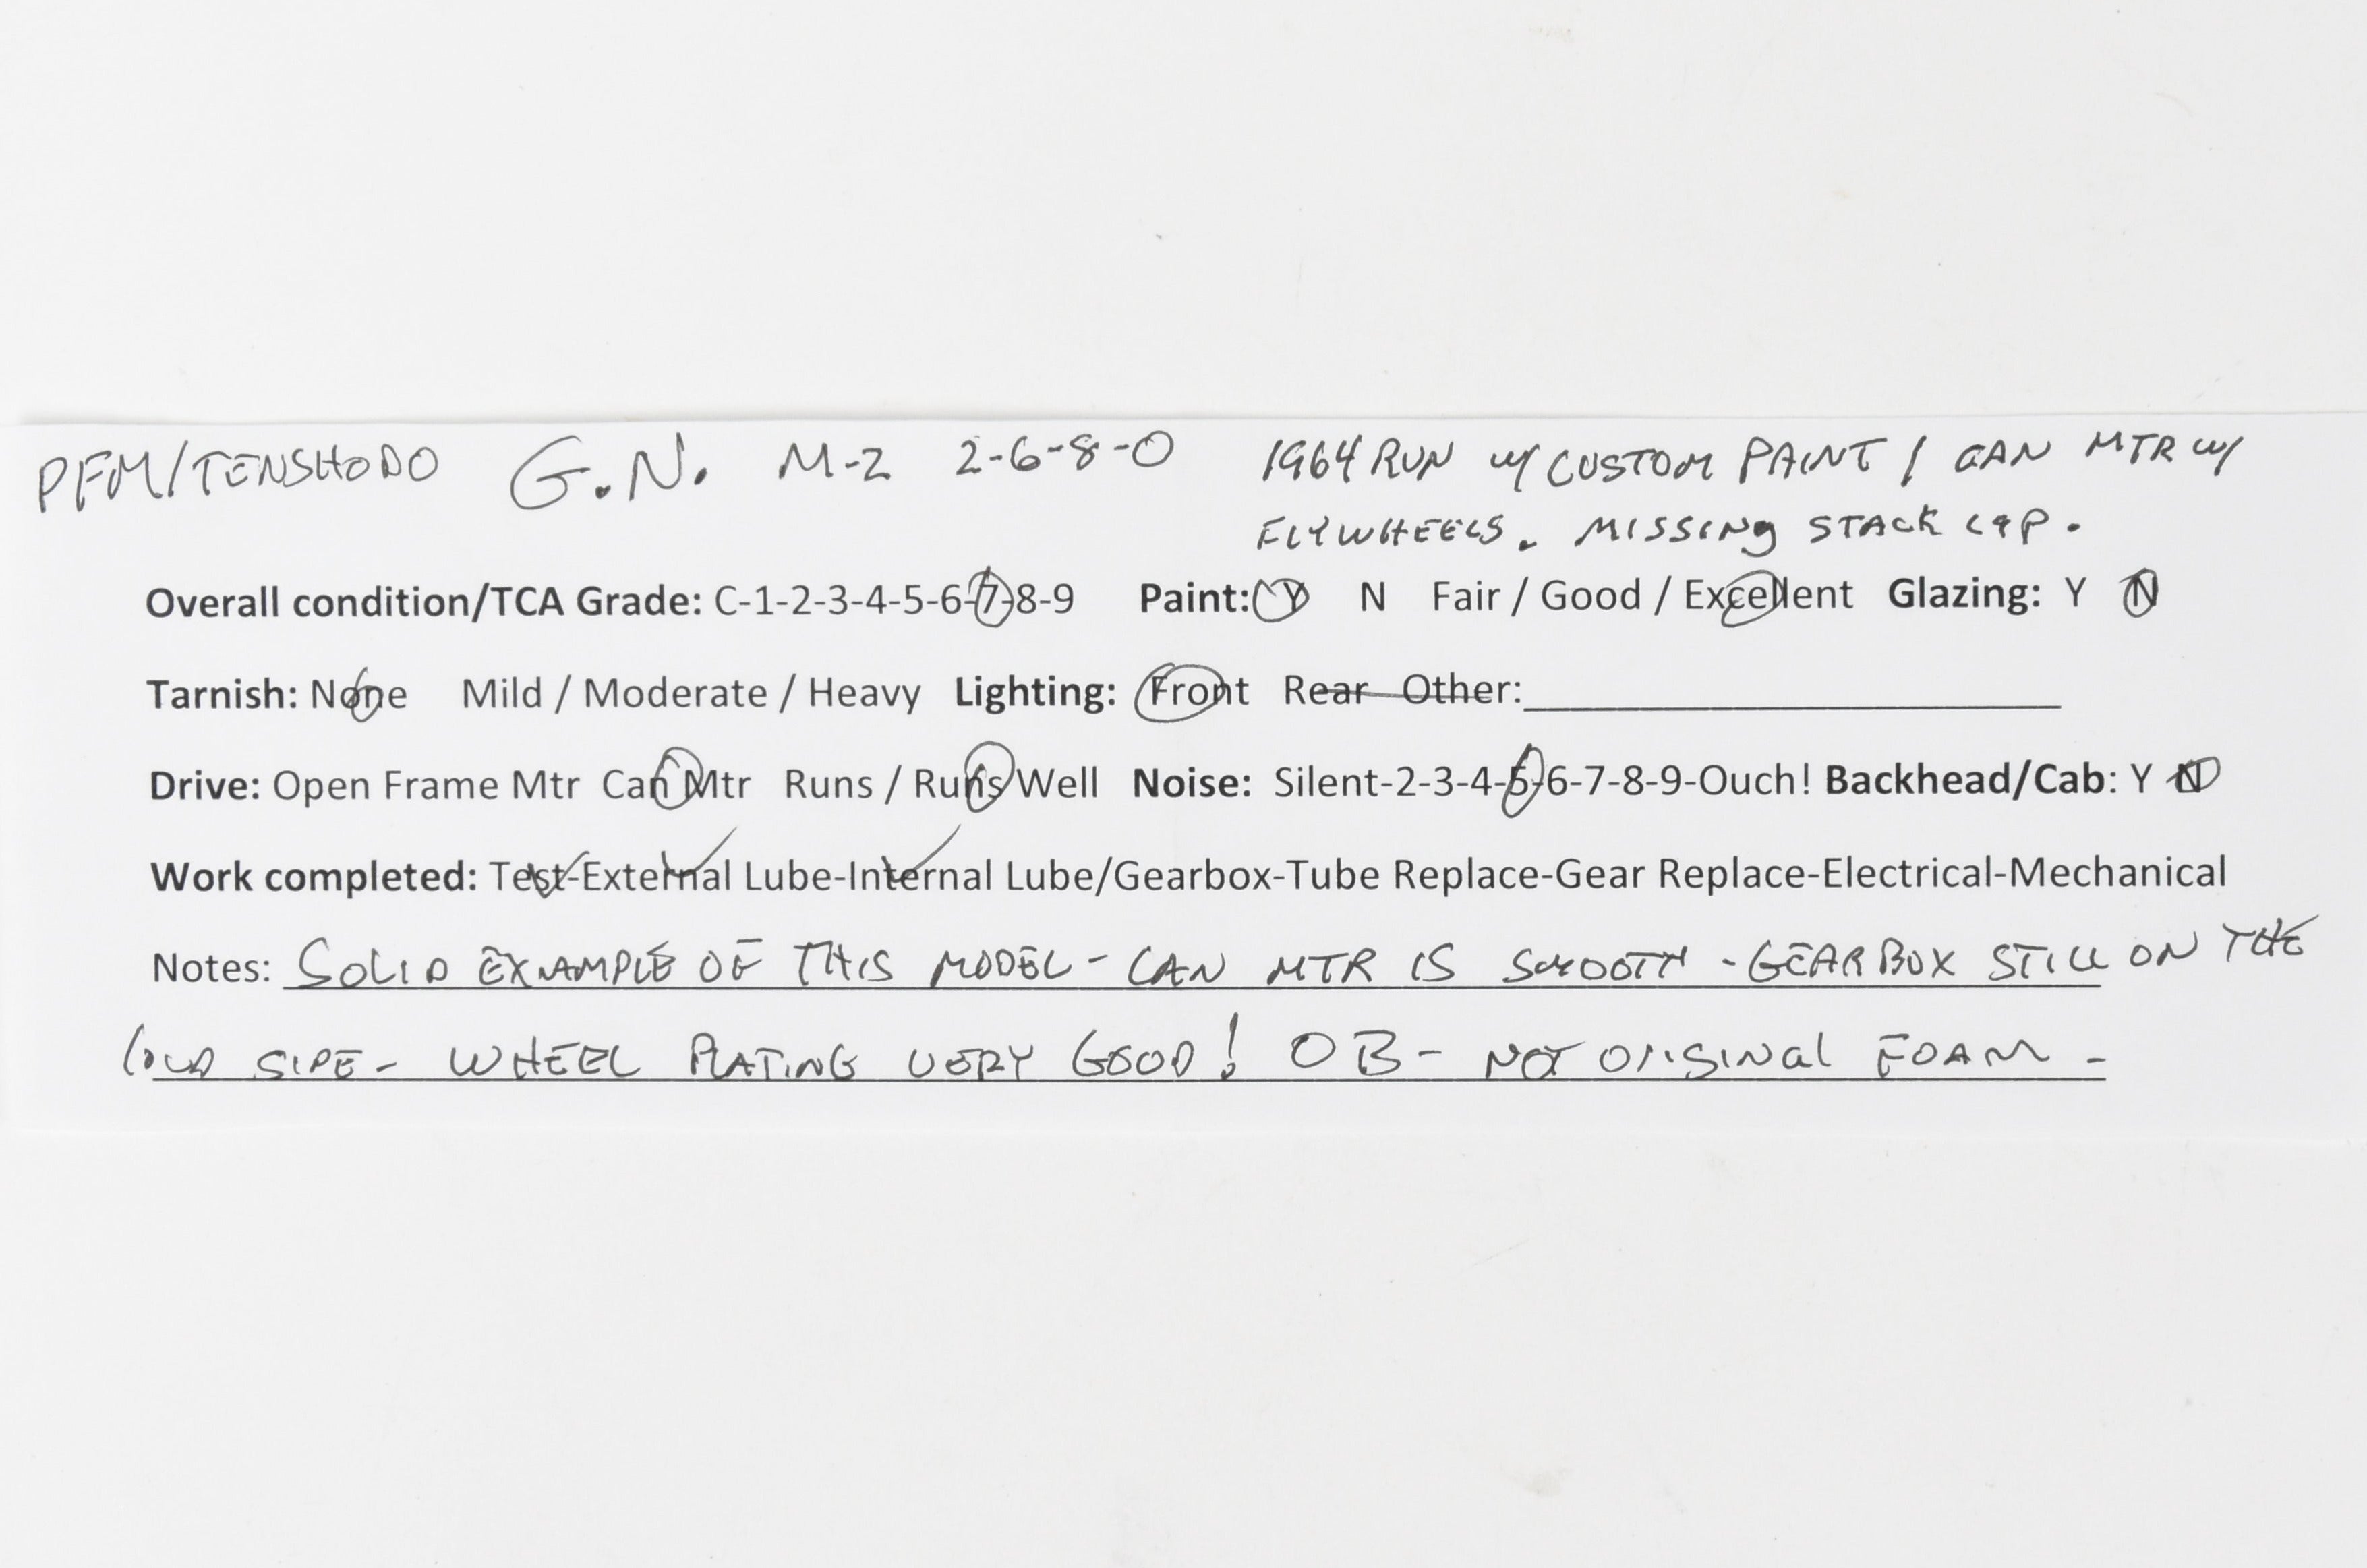 PFM/TENSHODO G.N. M-2 2-6-8-0 1964 RUN w/ CUSTOM PAINT / CAN MTR w/
FLYWHEELS. MISSING STACK CAP.
Overall condition/TCA Grade: C-1-2-3-4-5-6-7-8-9 Paint: Y N Fair / Good / Excellent Glazing: Y N
Tarnish: None Mild / Moderate / Heavy Lighting: Front Rear Other:
Drive: Open Frame Mtr Can Mtr Runs / Runs Well Noise: Silent-2-3-4-5-6-7-8-9-Ouch! Backhead/Cab: Y N
Work completed: Test-External Lube-Internal Lube/Gearbox-Tube Replace-Gear Replace-Electrical-Mechanical
Notes: SOLID EXAMPLE OF THIS MODEL - CAN MTR IS SMOOTH - GEARBOX STILL ON THE
LOUD SIDE - WHEEL PLATING VERY GOOD! OB - NOT ORIGINAL FOAM -